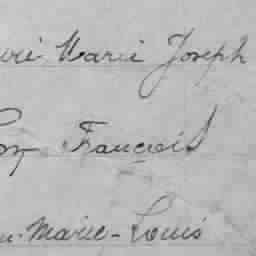 Marie Joseph
François
Marie-Louis